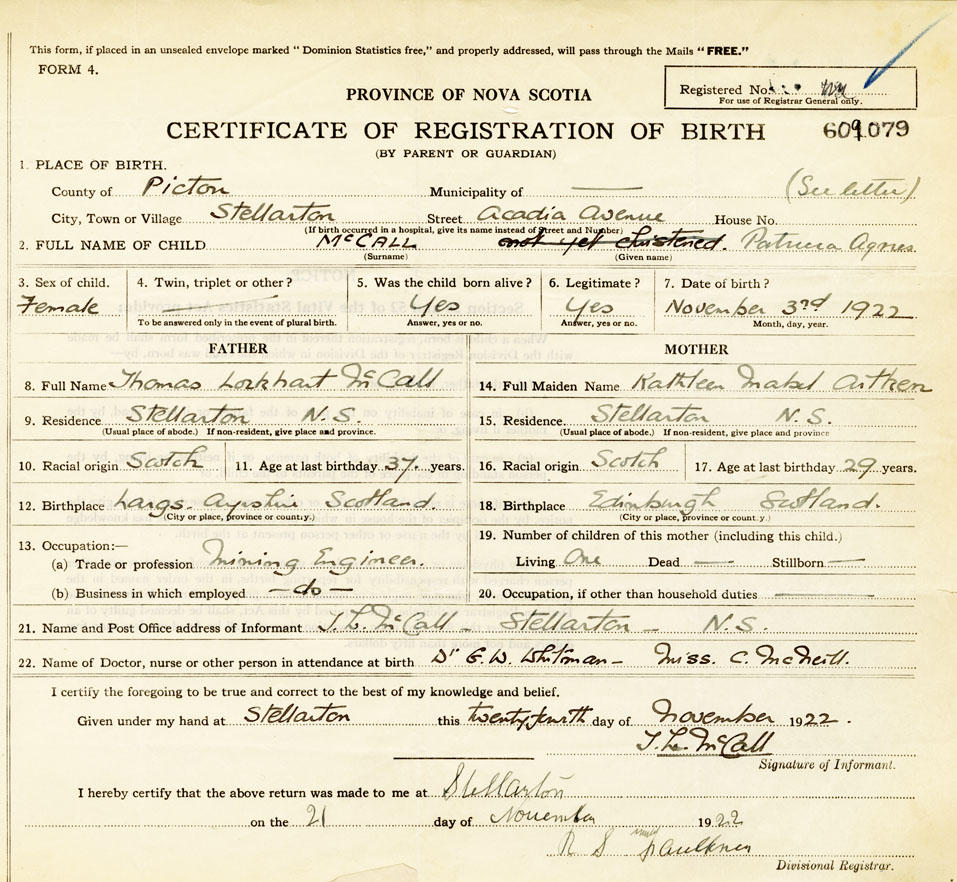 This form, if placed in an unsealed envelope marked " Dominion Statistics free," and properly addressed, will pass through the Mails "FREE."
FORM 4.
Registered No.
For use of Registrar General only.
PROVINCE OF NOVA SCOTIA
CERTIFICATE OF REGISTRATION OF BIRTH 609079
(BY PARENT OR GUARDIAN)
1. PLACE OF BIRTH.
County of Picton Municipality of (See letter)
City, Town or Village Stellarton Street Acadia Avenue House No.
(If birth occurred in a hospital, give its name instead of Street and Number)
2. FULL NAME OF CHILD McCALL not yet christened. Patricia Agnes
(Surname) (Given name)
3. Sex of child. 4. Twin, triplet or other? 5. Was the child born alive? 6. Legitimate? 7. Date of birth?
Female Yes Yes November 3rd 1922
To be answered only in the event of plural birth. Answer, yes or no. Answer, yes or no. Month, day, year.
FATHER MOTHER
8. Full Name Thomas Lockhart McCall 14. Full Maiden Name Kathleen Mabel Aitken
9. Residence Stellarton N.S. 15. Residence. Stellarton N.S.
(Usual place of abode.) If non-resident, give place and province. (Usual place of abode.) If non-resident, give place and province
10. Racial origin Scotch 11. Age at last birthday 37. years. 16. Racial origin Scotch 17. Age at last birthday 29 years.
12. Birthplace Largs. Ayrshire Scotland. 18. Birthplace Edinburgh Scotland.
(City or place, province or country.) (City or place, province or country.)
13. Occupation:— 19. Number of children of this mother (including this child.)
(a) Trade or profession Mining Engineer. Living One Dead — Stillborn —
(b) Business in which employed — do — 20. Occupation, if other than household duties —
21. Name and Post Office address of Informant T.L. McCall – Stellarton – N.S.
22. Name of Doctor, nurse or other person in attendance at birth Dr G.W. Whitman – Miss. C. McNeill.
I certify the foregoing to be true and correct to the best of my knowledge and belief.
Given under my hand at Stellarton this twenty fourth day of November 1922.
T.L. McCall
Signature of Informant.
I hereby certify that the above return was made to me at Stellarton
on the 21 day of November 1922
R S Faulkner
Divisional Registrar.